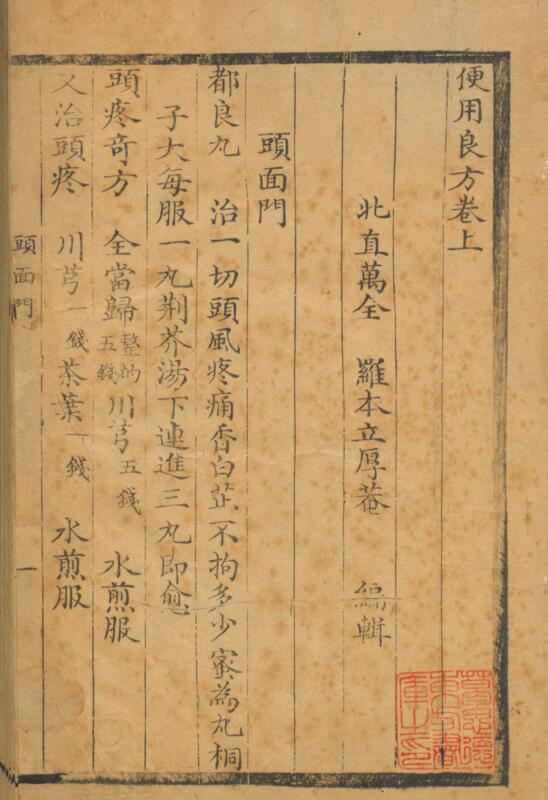 便用良方卷上
北直萬全　羅本立厚菴　編輯
頭面門
都良丸　治一切頭風疼痛香白芷不拘多少蜜為丸桐
子大每服一丸荆芥湯下連進三丸即愈
頭疼竒方　全當歸整的五錢川芎五錢　水煎服
又治頭疼　川芎一錢茶葉一錢　水煎服
頭面門　一